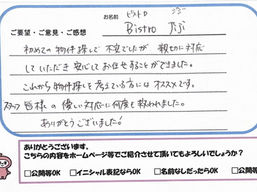 お名前 ビストロ ジジ
ご要望・ご意見・ご感想 Bistro Jiji
初めての物件探しで不安でしたが 親切に対応
していただき安心してお任せすることができました。
これから物件探しを考えている方には オススメです。
スタッフ皆様の優しい対応に何度も救われました。
ありがとうございました!
ありがとうございます。
こちらの内容をホームページ等でご紹介させて頂いてもよろしいでしょうか?
□公開等OK □イニシャル表記ならOK □名前なしだったらOK □公開等